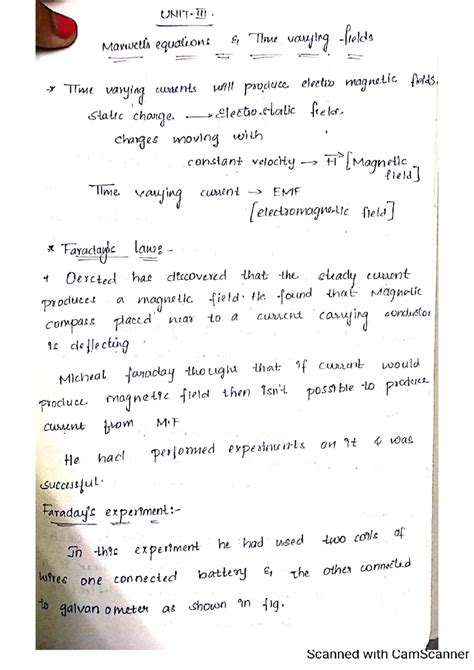 UNIT-III.
Maxwell's equations & Time varying fields
* Time varying currents will produce electro magnetic fields.
static charge ⟶ electro static fields.
charges moving with
constant velocity → H [Magnetic
field]
Time varying current → EMF
[electromagnetic field]
* Faraday's laws -
Oersted has discovered that the steady current
produces a magnetic field. He found that Magnetic
compass placed near to a current carrying conductor
is deflecting.
Micheal faraday thought that if current would
produce magnetic field then isn't possible to produce
current from M.F
He had performed experiments on it & was
successful.
Faraday's experiment:-
In this experiment he had used two coils of
wires one connected battery & the other connected
to galvanometer as shown in fig.
Scanned with CamScanner